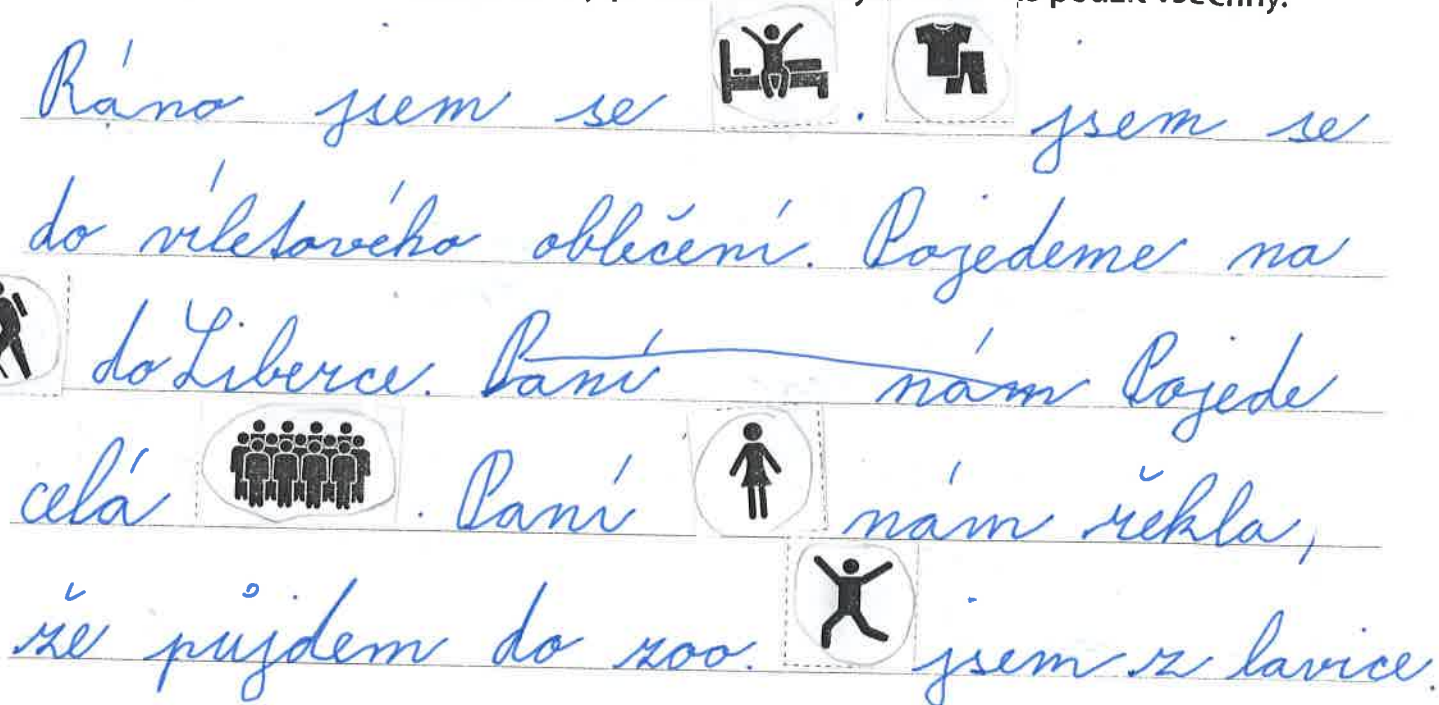 použít všechny.
Ráno jsem se . jsem se
do víletového oblečení. Pojedeme na
do Liberce. Paní nám Pojede
celá . Paní nám řekla,
že pujdem do zoo. jsem z lavice.